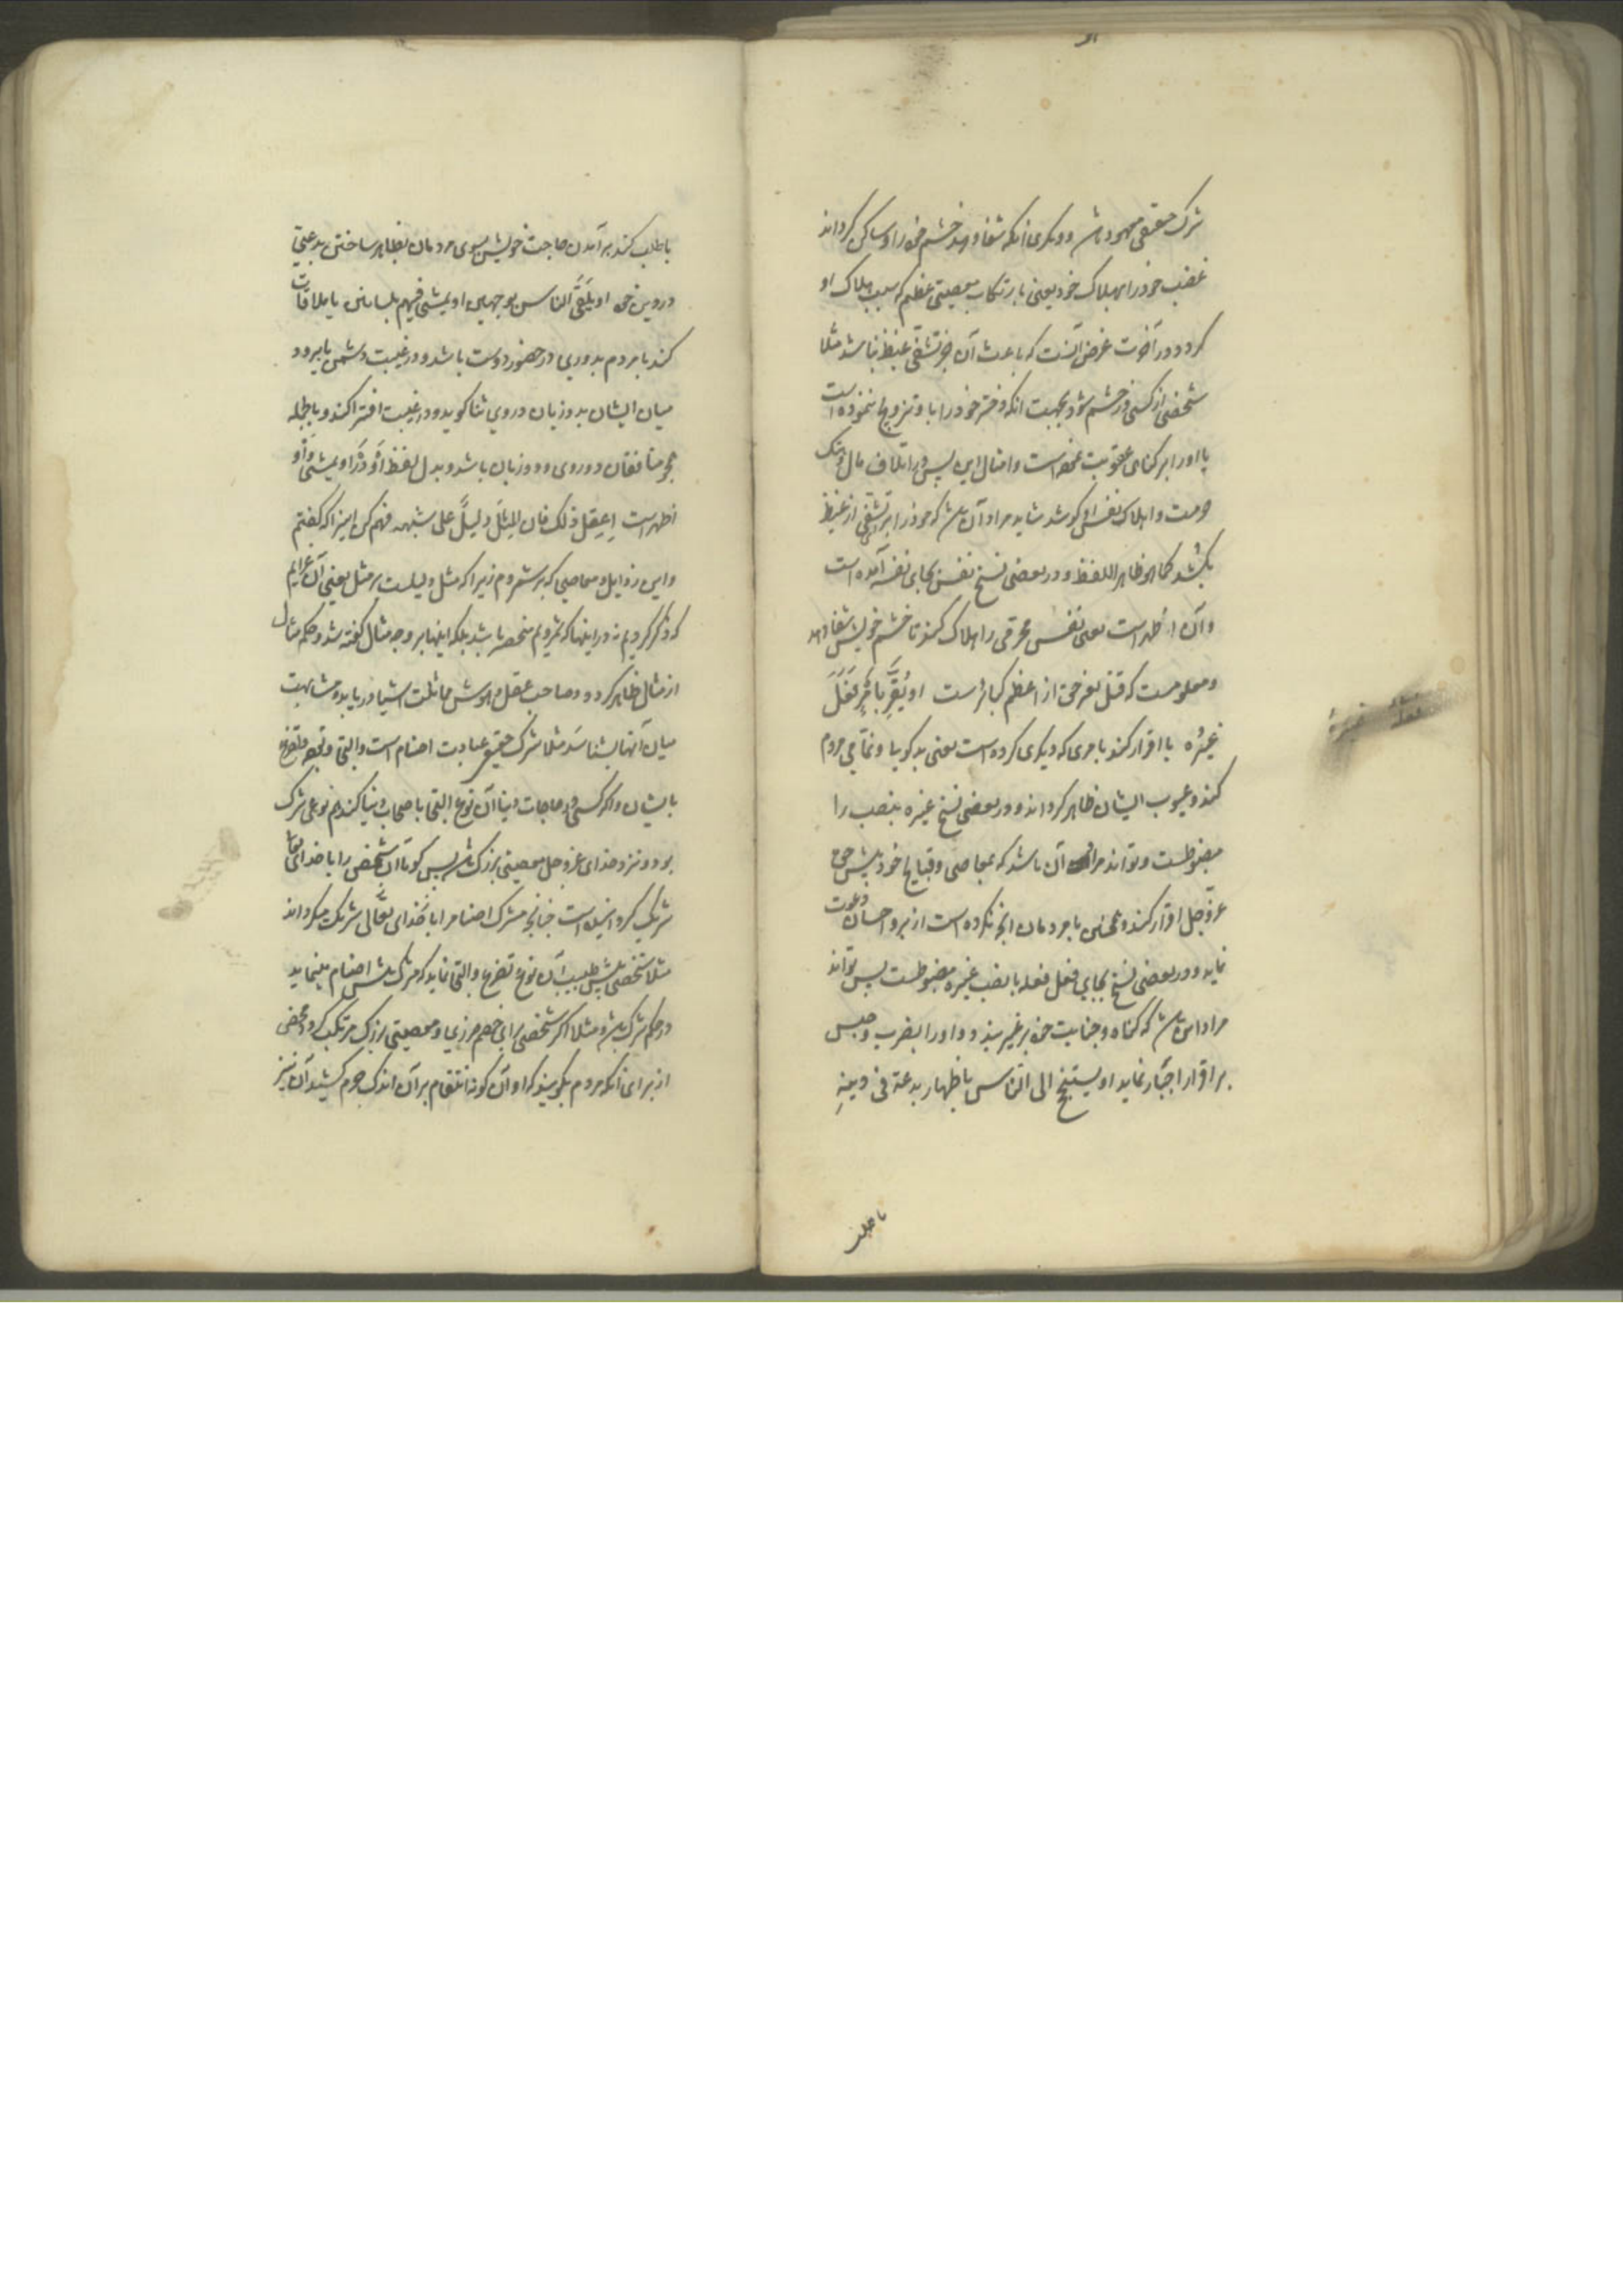 شرک حقیقی معهود باشد و دیگری انکه شفا دهد خشم خود را و ساکن کرداند
غضب خود را بهلاک خود یعنی بارتکاب معصیتی عظیم که سبب هلاک او
کردد در آخرت غرض آنست که باعث آن جز تشفی غیظ نباشد مثلا
شخصی از کسی در خشم شود بجهت انکه دختر خود را با و تزویج ننموده است
یا اورا بر کناهی عقوبت نموده است و امثال این پس در اتلاف مال و هتک
حرمت و اهلاک نفس او کوشد شاید مراد آن باشد که خود را برای تشفی از غیظ
بکشد کما هو ظاهر اللفظ و در بعضی نسخ نفس بجای نفسه آمده است
و آن اظهر است یعنی نفس محرمی را هلاک کند تا خشم خویش شفا دهد
و معلومست که قتل بغیر حق از اعظم کبائر است او یُقِرَّ بِاَمْرٍ فَعَلَ
غیرُه یا اقرار کند بامری که دیگری کرده است یعنی بدکویی و نمّامی مردم
کند و عیوب ایشان ظاهر کرداند و در بعضی نسخ غیره بنصب را
مضبوطست و تواند مراد آن باشد که بمعاصی و قبایح خود پیش حق
عزّوجل اقرار کند و همچنین با مردمان انچه نکرده است از بر و احسان دعوت
نماید و در بعضی نسخ بجای فعل فعله با نصب غیره مضبوطست پس تواند
مراد این باشد که کناه و جنایت خود بر غیر بندد و اورا بضرب و حبس
بر اقرار اجبار نماید او یستنجح الی الناس باظهار بدعة فی دینه
یا طلب
یا طلب کند بر آمدن حاجت خویش بسوی مردمان بظاهر ساختن بدعتی
در دین خود او یلقی الناس بوجهین او یمشی فیهم بلسانین یا ملاقات
کند با مردم بدوروی در حضور دوست باشد و در غیبت دشمن یا برود
میان ایشان بدو زبان در روی ثنا کوید و در غیبت افترا کند و بالجمله
همچو منافقان دو روی و دو زبان باشد و بدل لفظ او در او یمشی واو
اظهر است اِعقِل ذلک فان المِثلَ دلیلٌ علی شبهه فهم کن اینرا که کفتم
و این رذایل و معاصی که بر شمردم زیرا که مثل دلیلست بر مثل یعنی آن عزایم
که ذکر کردیم نه در اینها که شمردیم منحصر باشد بلکه اینها بر وجه مثال کفته شد و حکم مثال
از مثال ظاهر کردد و صاحب عقل و هوش مماثلت اشیا دریابد و مشابهت
میان آنها بشناسد مثلا شرک حقیقی عبادت اصنام است و التجا و تضرع
بایشان و اکر کسی در حاجات دنیا آن نوع التجا باصحاب دنیا کند هم نوعی شرک
بود و نزد خدای عز و جل معصیتی بزرک باشد پس کویا آن شخص را با خدای تعالی
شریک کردانیده است چنانچه مشرک اصنام را با خدای تعالی شریک میکرداند
مثلا شخصی پیش طبیب آن نوع تضرع و التجا نماید که مشرک پیش اصنام مینماید
در حکم شرک باشد و مثلا اکر شخصی برای خصم مردی او معصیتی بزرک مرتکب کردد محض
از برای انکه مردم بکویند که او آن کونه انتقام بر آن اندک جرم کشید آن نیز